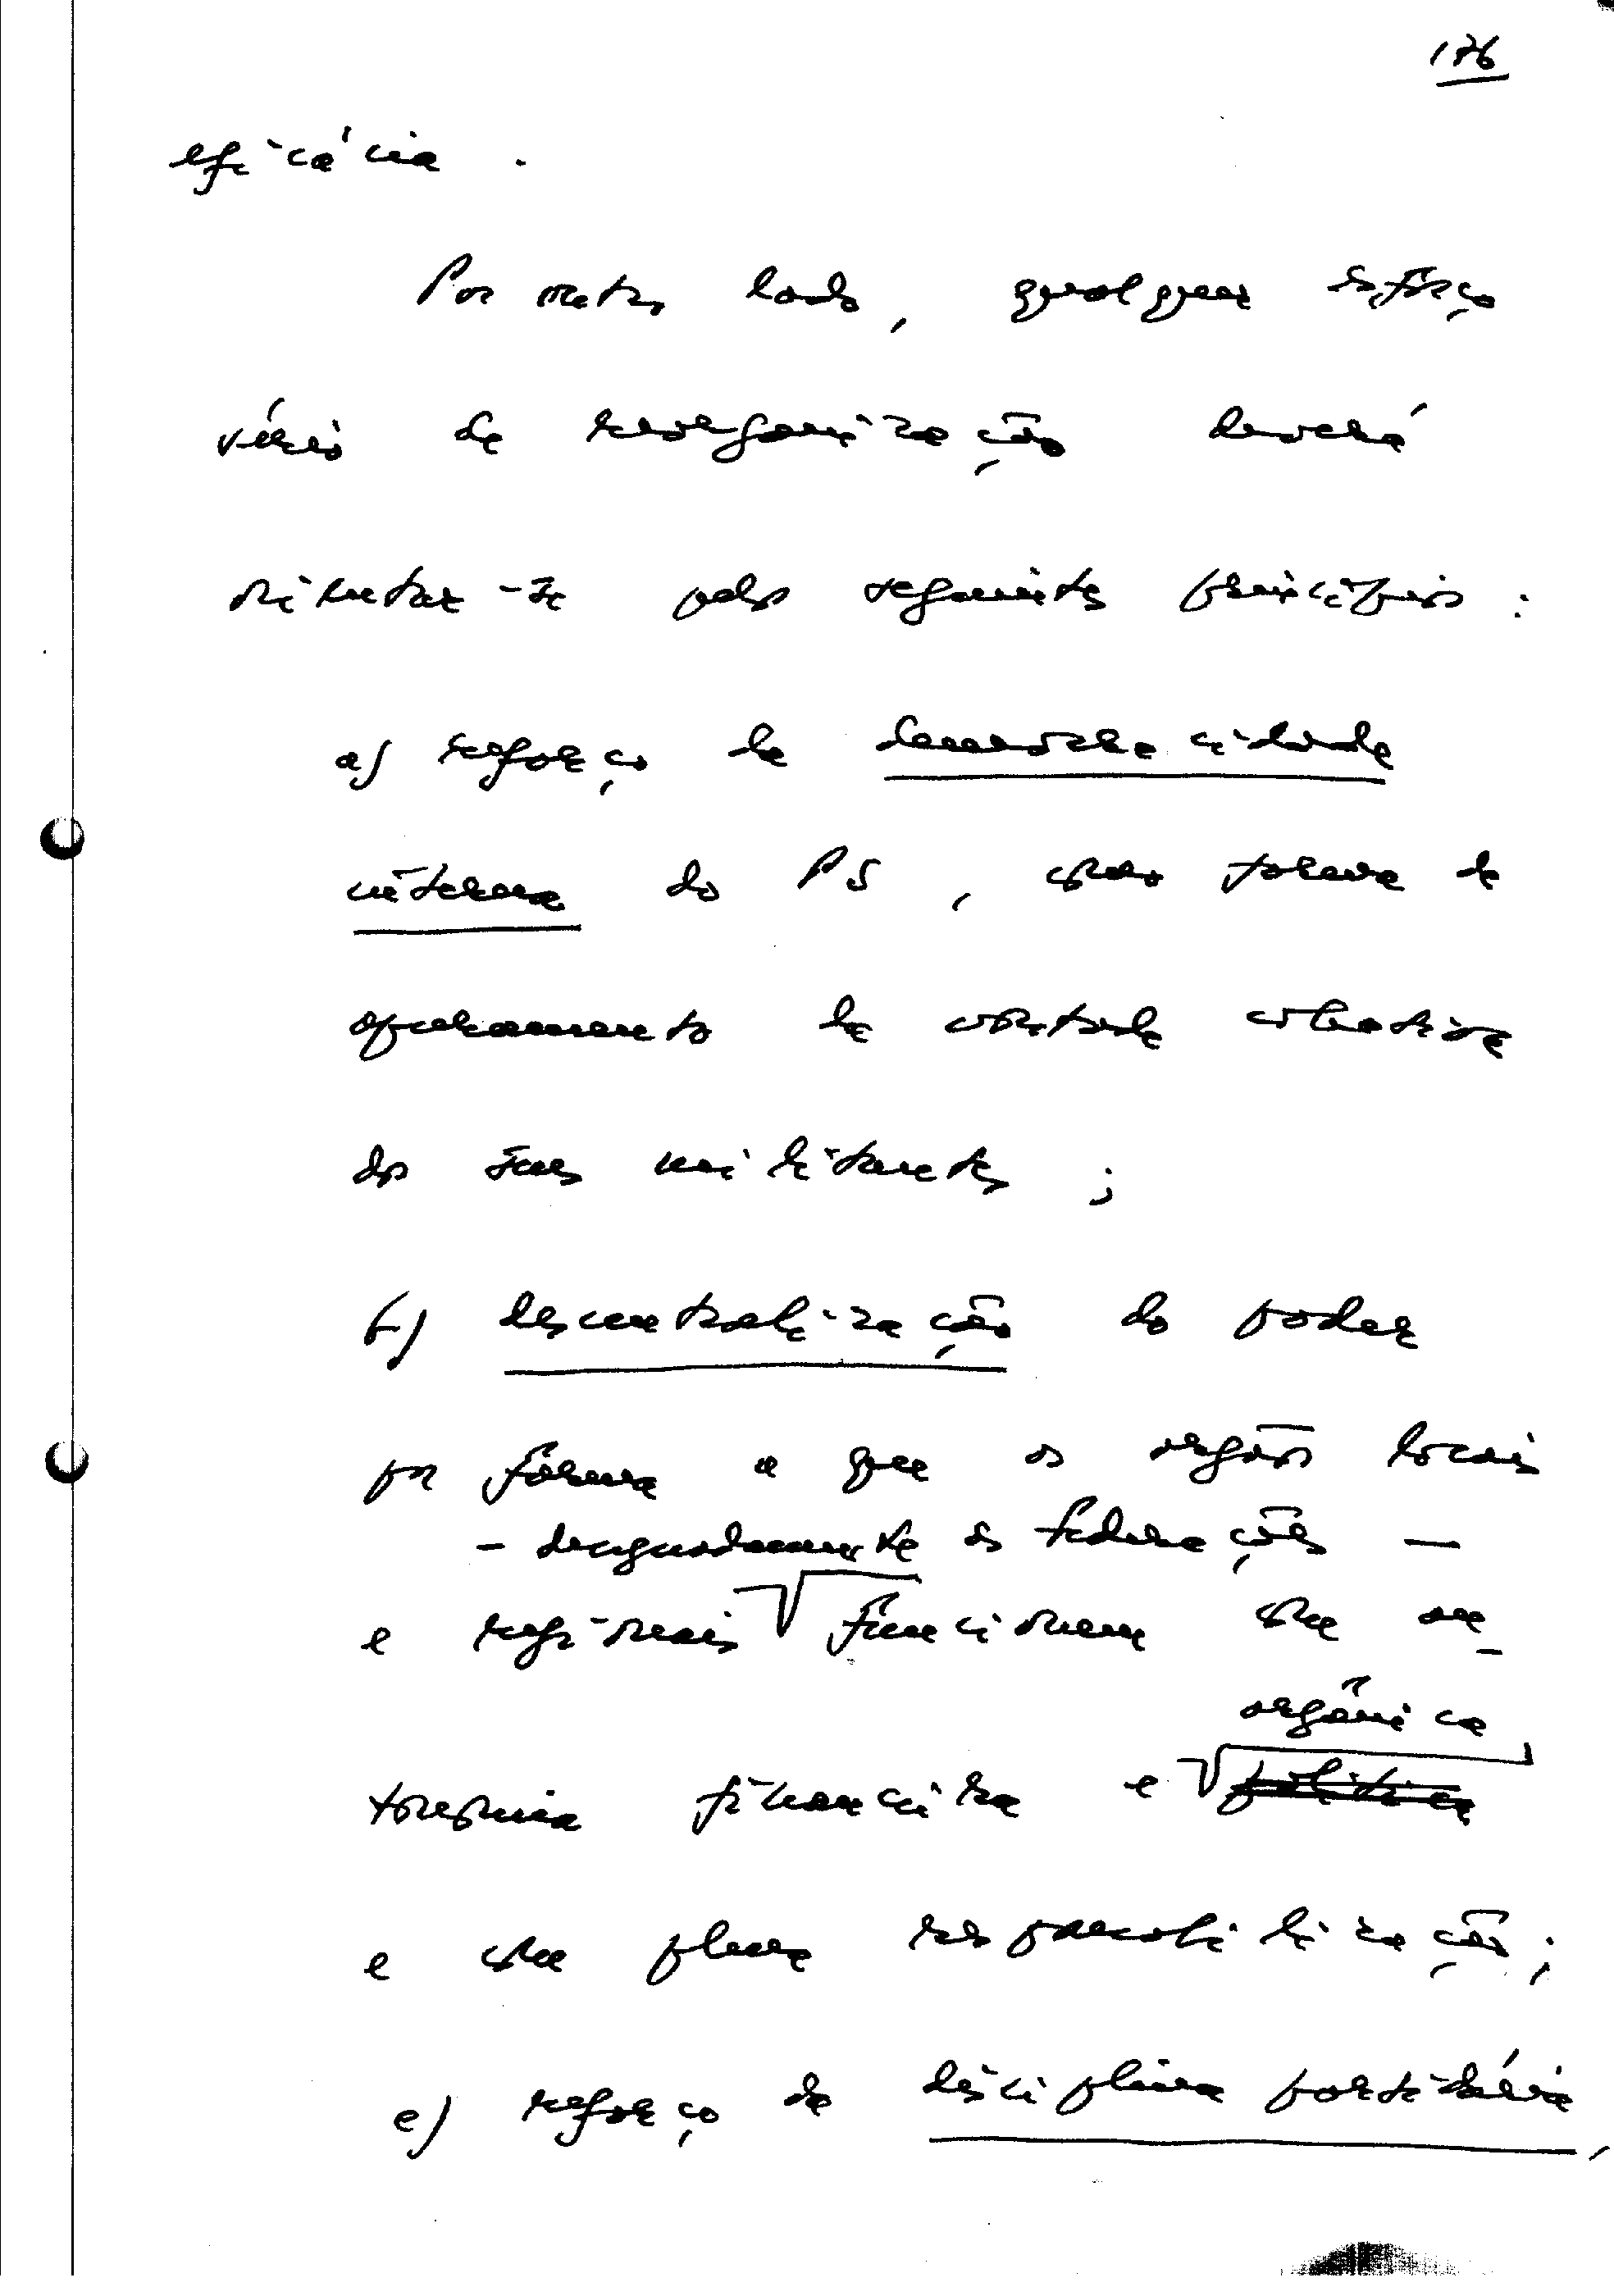 176
eficácia.
Por outro lado, qualquer esforço
sério de reorganização deverá
orientar-se pelos seguintes princípios:
a) reforço da democraticidade
interna do PS, como forma de
apuramento da vontade colectiva
dos seus militantes;
b) descentralização do poder
por forma a que os orgãos locais
- designadamente as federações -
e regionais funcionem com au-
orgânica
tonomia financeira e política
e com plena responsabilização;
c) reforço da disciplina partidária,